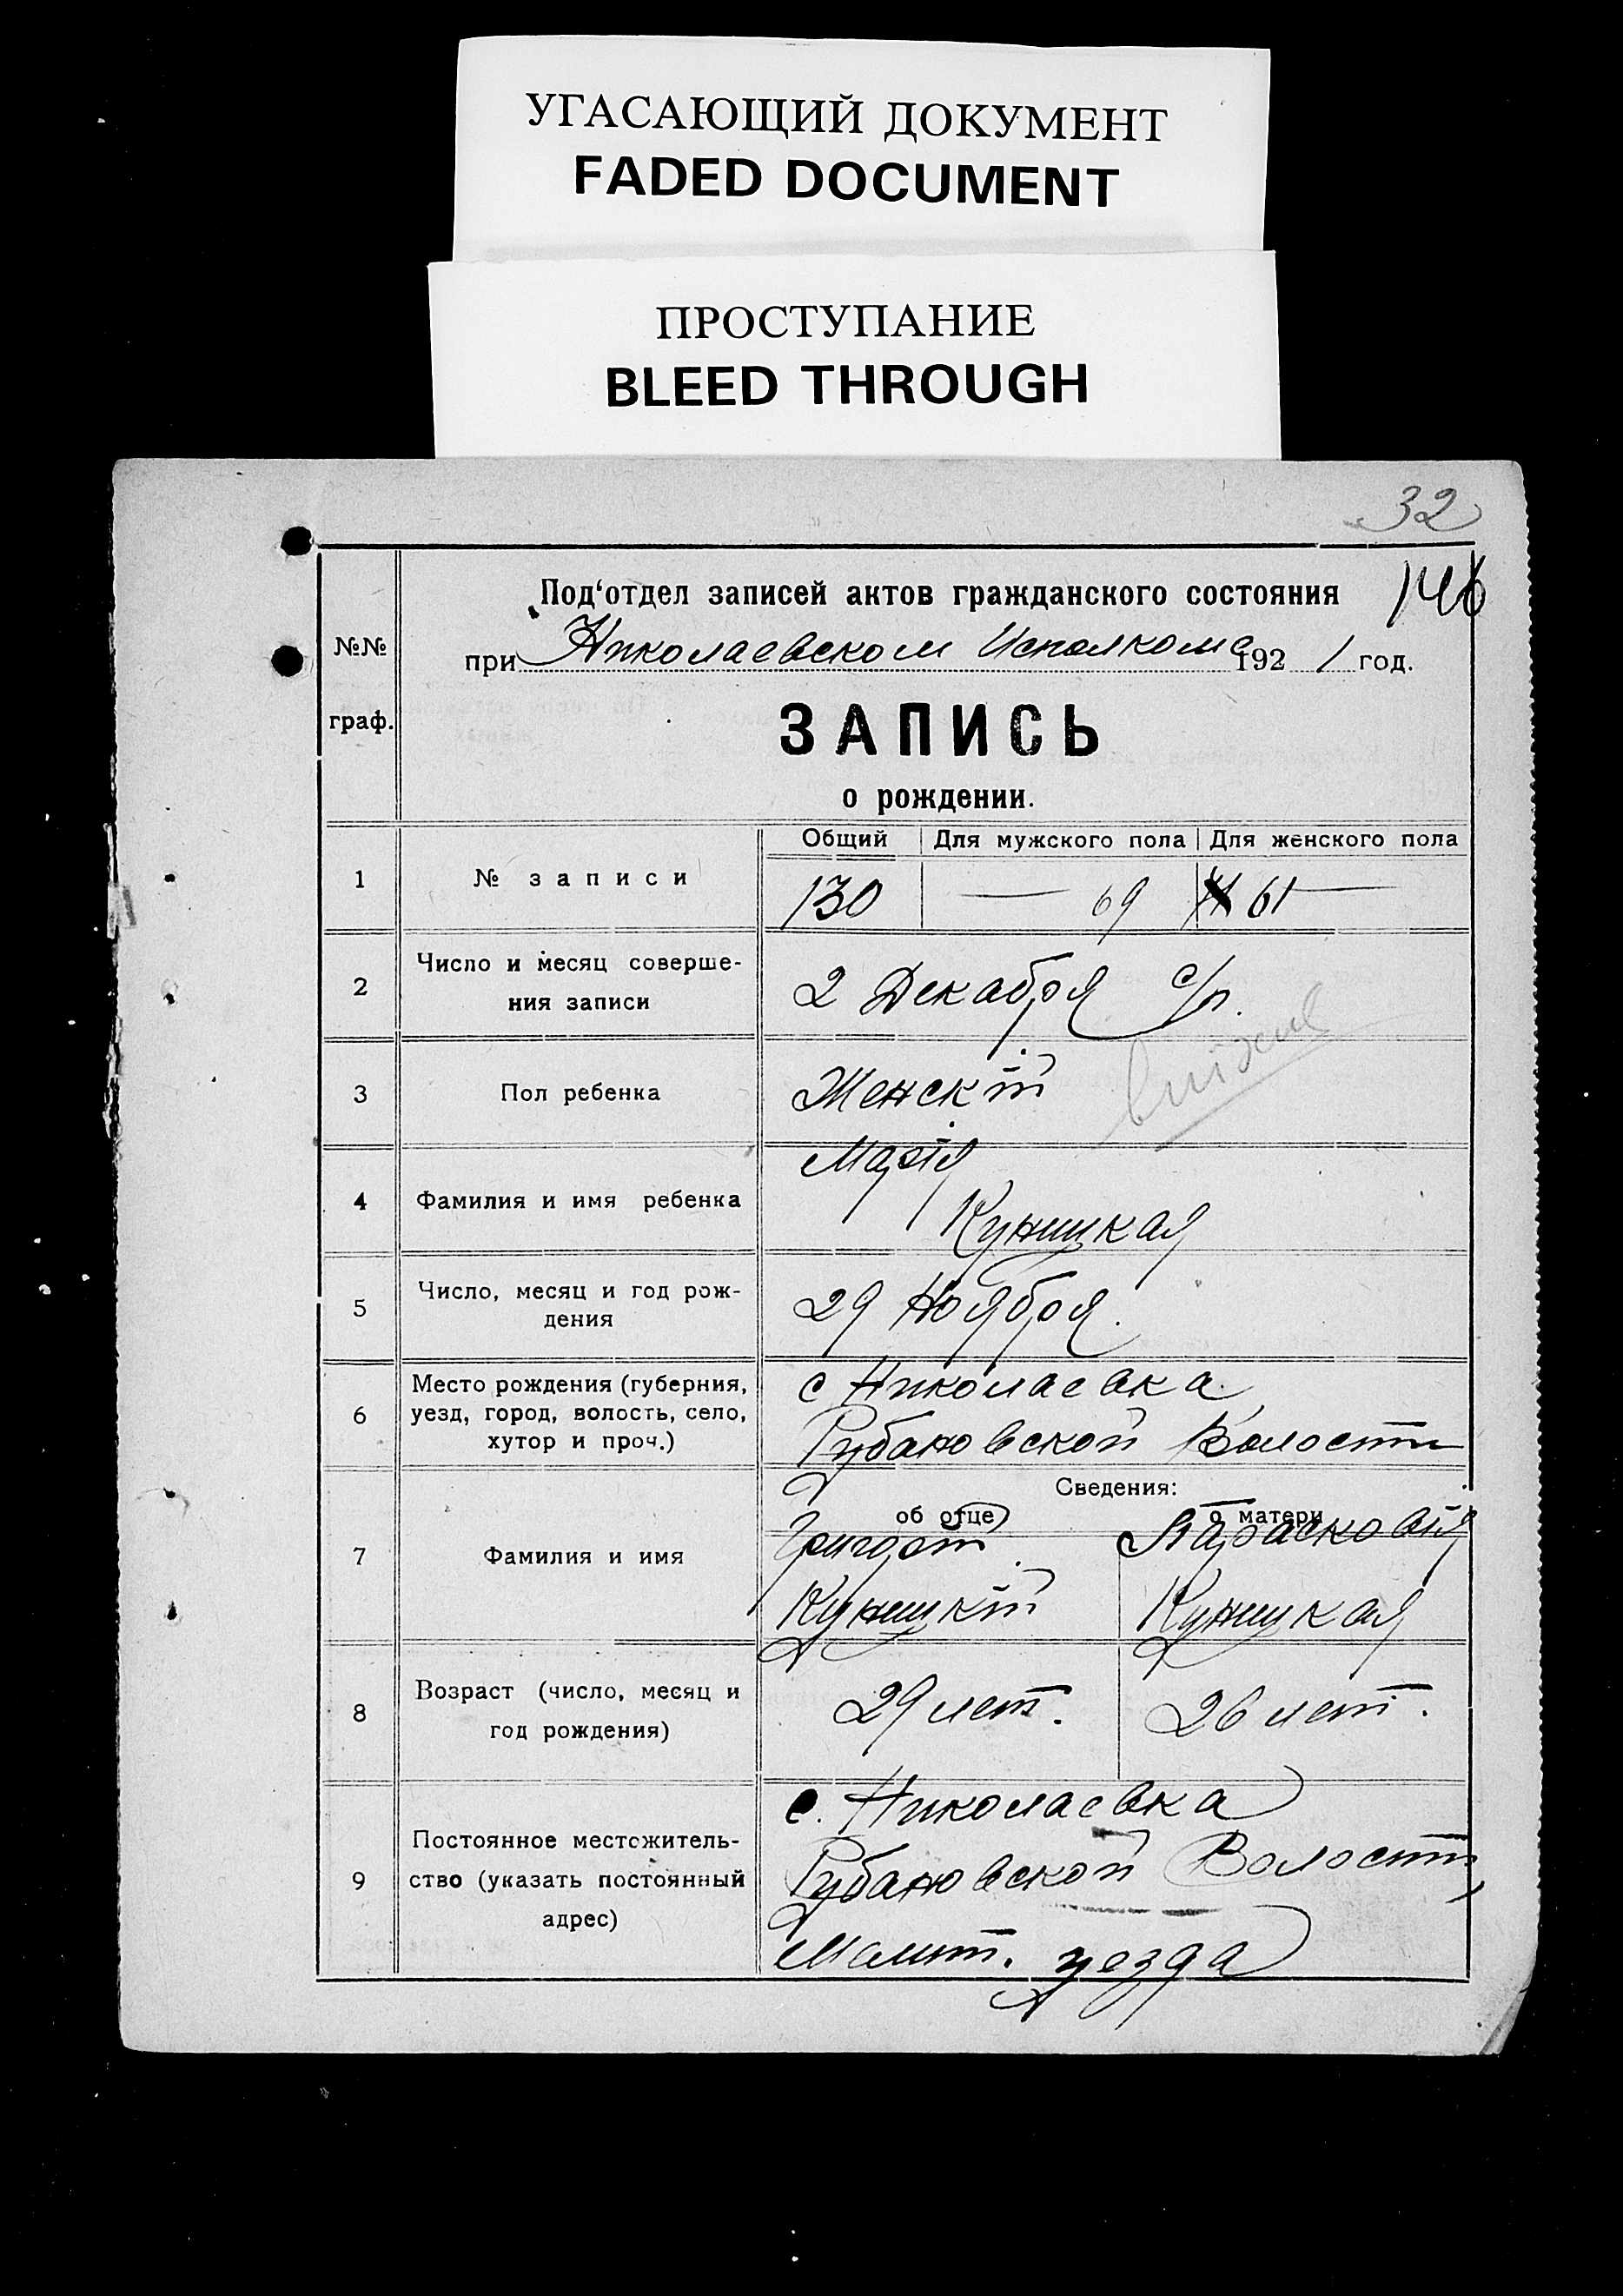 УГАСАЮЩИЙ ДОКУМЕНТ
FADED DOCUMENT
ПРОСТУПАНИЕ
BLEED THROUGH
32
146
Под‘отдел записей актов гражданского состояния
при Николаевском Исполкоме 1921 год.
№№ граф.
ЗАПИСЬ
о рождении.
Общий Для мужского пола Для женского пола
1 № записи 130 — 69 61 —
2 Число и месяц соверше-
ния записи
2 Декабря с/г.
3 Пол ребенка Женскій
4 Фамилия и имя ребенка
Марія
Куницкая
5 Число, месяц и год рож-
дения
29 Ноября.
6 Место рождения (губерния,
уезд, город, волость, село,
хутор и проч.)
с Николаевка
Рубановской Волости
Сведения:
об отце о матери
7 Фамилия и имя
Григорій Парасковія
Куницкій Куницкая
8 Возраст (число, месяц и
год рождения)
29 лет. 26 лет.
9 Постоянное местожитель-
ство (указать постоянный
адрес)
с. Николаевка
Рубановской Волости
Мелит. уезда